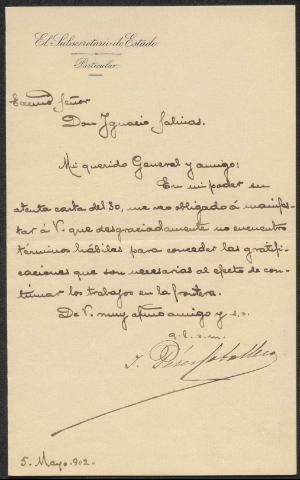 El Subsecretario de Estado
Particular
Excmo Señor
Don Ignacio Salinas.
Mi querido General y amigo:
En mi poder su
atenta carta del 30, me veo obligado á manifes-
tar á V. que desgraciadamente no encuentro
términos hábiles para conceder las gratifi-
caciones que son necesarias al efecto de con-
tinuar los trabajos en la frontera.
De V. muy afmo amigo y s.s.
q. b. s. m.
J. Pérez Caballero
5. Mayo. 902.